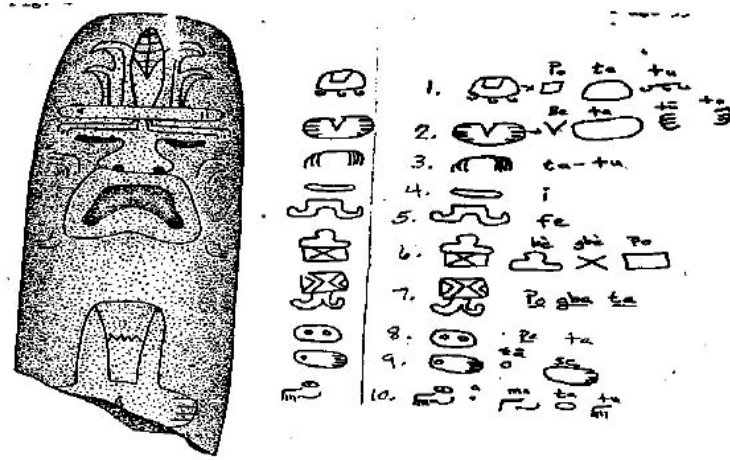 1. Po ta tu
2. Be ta
3. ta-tu
4. i
5. fe
6. bè gbè Po
7. Po gba ta
8. Pe ta
9. ta se
10. a ma ta tu